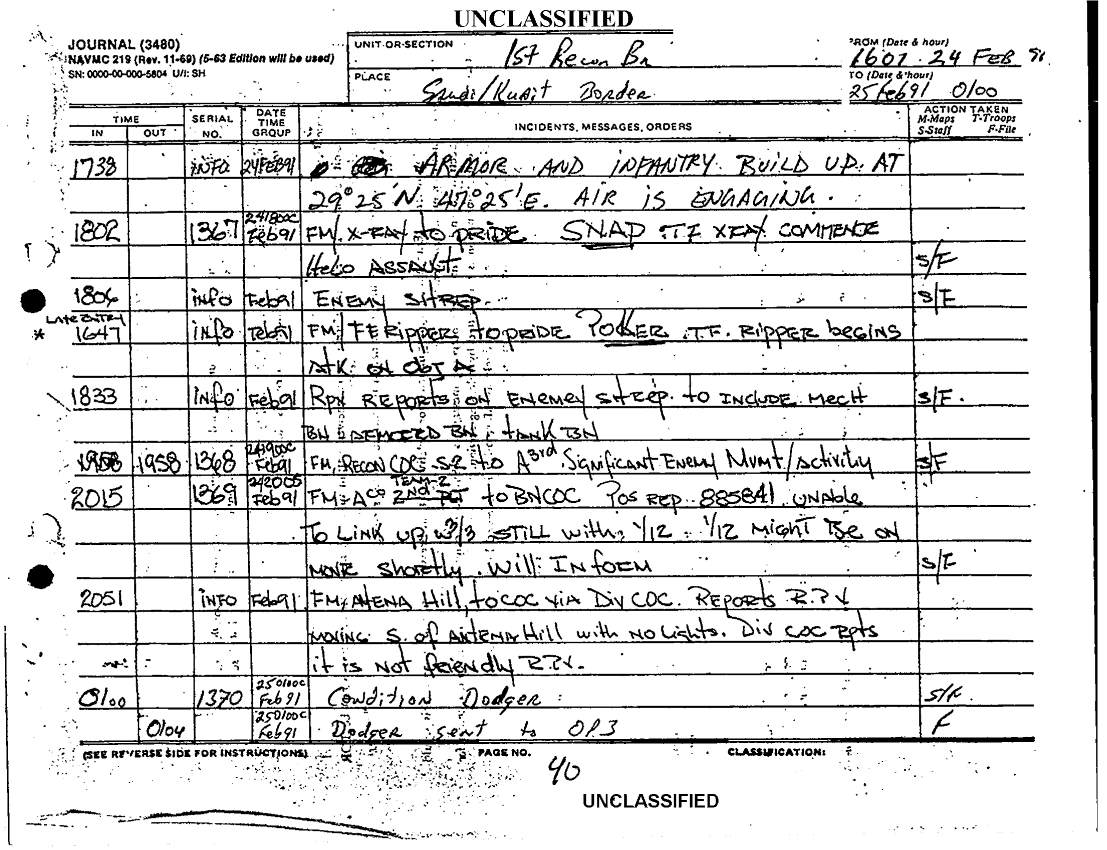 UNCLASSIFIED
JOURNAL (3480)
NAVMC 219 (Rev. 11-69) (5-63 Edition will be used)
SN: 0000-00-000-5804 U/I: SH
UNIT OR SECTION
1st Recon Bn
FROM (Date & hour)
1601 24 FEB 91
PLACE
Saudi/Kuait Border
TO (Date & hour)
25 Feb 91 0100
TIME
IN OUT
SERIAL NO.
DATE TIME GROUP
INCIDENTS, MESSAGES, ORDERS
ACTION TAKEN
M-Maps T-Troops
S-Staff F-File
1738 INFO 24FEB91 ARMOR AND INFANTRY BUILD UP AT
29° 25'N 47° 25'E. AIR IS ENGAGING.
1802 1367 241800C Feb91 FM X-RAY TO PRIDE SNAP TF XRAY COMMENCE
Helo ASSAULT S/F
1806 info Feb91 ENEMY SITREP. S/F
LATE ENTRY
* 1647 info Feb91 FM TF Ripper to PRIDE T.F. Ripper begins
Atk on Obj A
1833 INFO Feb91 REPORTS ON ENEMEY SITREP. to INCLUDE MECH S/F.
BN TANK BN
1958 1958 1368 241900C Feb91 FM, RECON COC S-2 to A 3rd Significant Enemy Mvmt/Activity S/F
2015 1369 Feb91 FM A Co TEAM-2 2ND PLT to BNCOC Pos REP. 885841 UNABLE
To LINK UP w/ 3/3 STILL with 1/12. 1/12 MIGHT BE ON
MOVE shortly. Will INFORM S/F
2051 INFO Feb91 FM ATENA Hill, to COC VIA DIV COC. REPORTS R.P.V.
MOVING S. of ANTENA Hill with NO Lights. Div COC Rpts
it is NOT friendly R.P.V.
0100 1370 250100C Feb 91 Condition Dodger S/F
0104 250100C Feb 91 Dodger sent to OP3 F
(SEE REVERSE SIDE FOR INSTRUCTIONS)
PAGE NO.
CLASSIFICATION:
40
UNCLASSIFIED